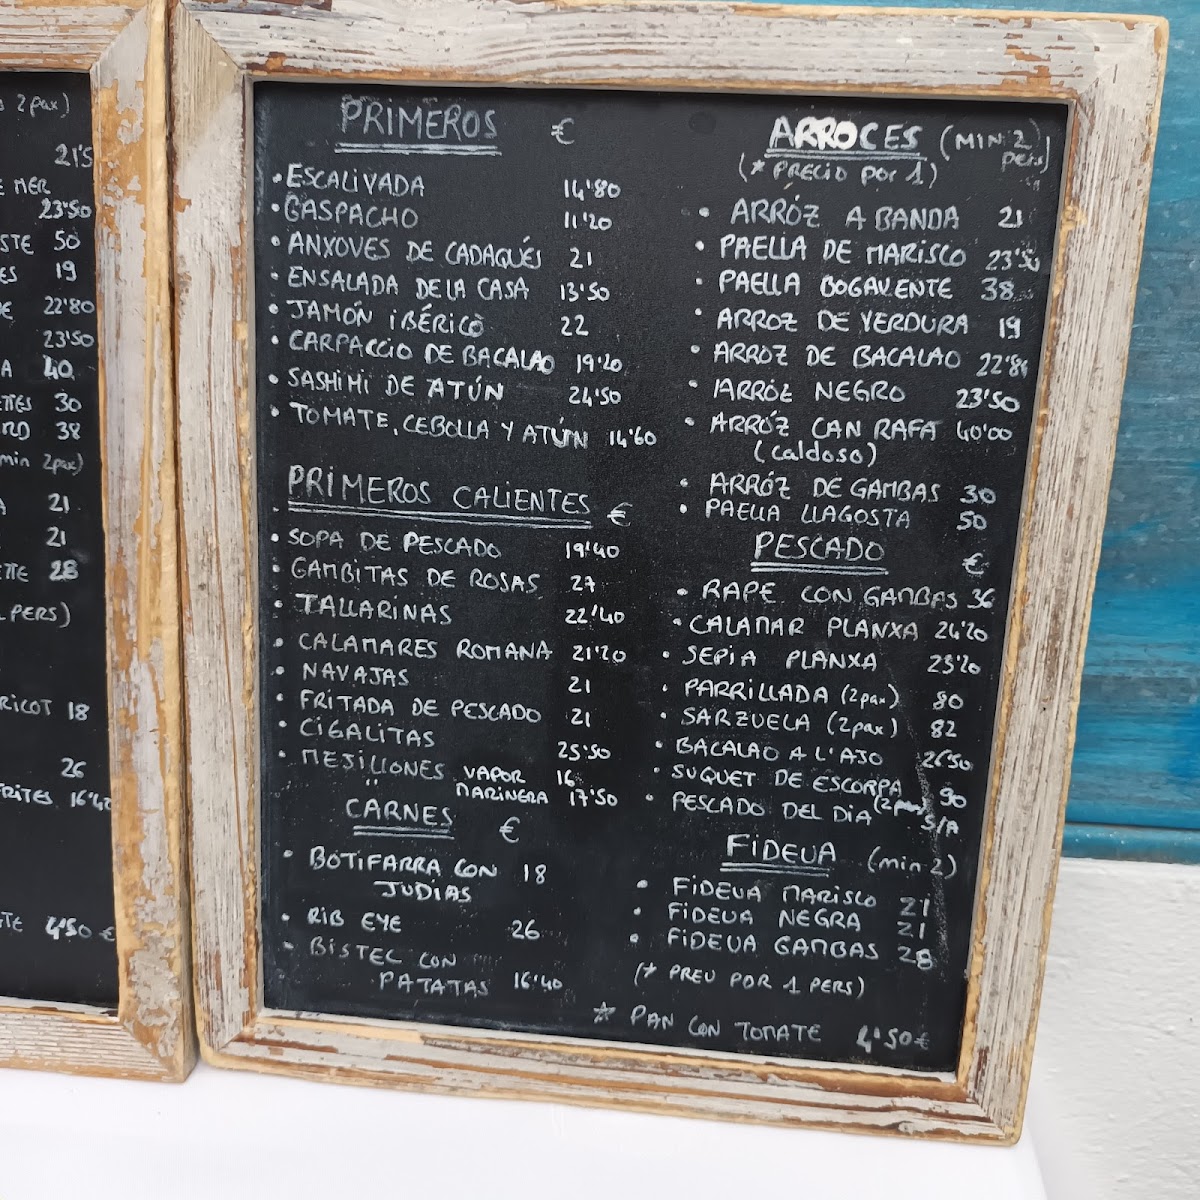 2pax)
21'5
E MER
23'50
STE 50
ES 19
22'80
23'50
A 40
ETTES 30
ARD 38
(min 2pax)
A 21
21
ETTE 28
PERS)
RICOT 18
26
FRITES 16'40
4'50 €
PRIMEROS €
• ESCALIVADA 14'80
• GASPACHO 11'20
• ANXOVES DE CADAQUÉS 21
• ENSALADA DE LA CASA 13'50
• JAMÓN IBÉRICO 22
• CARPACCIO DE BACALAO 19'20
• SASHIMI DE ATÚN 24'50
• TOMATE, CEBOLLA Y ATÚN 14'60
PRIMEROS CALIENTES €
• SOPA DE PESCADO 19'40
• GAMBITAS DE ROSAS 27
• TALLARINAS 22'40
• CALAMARES ROMANA 21'20
• NAVAJAS 21
• FRITADA DE PESCADO 21
• CIGALITAS 25'50
• MEJILLONES VAPOR 16
" MARINERA 17'50
CARNES €
• BOTIFARRA CON 18
JUDIAS
• RIB EYE 26
• BISTEC CON
PATATAS 16'40
ARROCES (MIN 2 pers)
(* PRECIO POR 1)
• ARRÓZ A BANDA 21
• PAELLA DE MARISCO 23'50
• PAELLA BOGAVENTE 38
• ARROZ DE VERDURA 19
• ARROZ DE BACALAO 22'80
• ARRÓZ NEGRO 23'50
• ARRÓZ CAN RAFA 40'00
(caldoso)
• ARRÓZ DE GAMBAS 30
• PAELLA LLAGOSTA 50
PESCADO €
• RAPE CON GAMBAS 36
• CALAMAR PLANXA 24'20
• SEPIA PLANXA 23'20
• PARRILLADA (2pax) 80
• SARZUELA (2pax) 82
• BACALAO A L'AJO 26'50
• SUQUET DE ESCORPA (2pax) 90
• PESCADO DEL DIA S/A
FIDEUA (min 2)
• FIDEUA MARISCO 21
• FIDEUA NEGRA 21
• FIDEUA GAMBAS 28
(* PREU POR 1 PERS)
* PAN CON TOMATE 4'50€